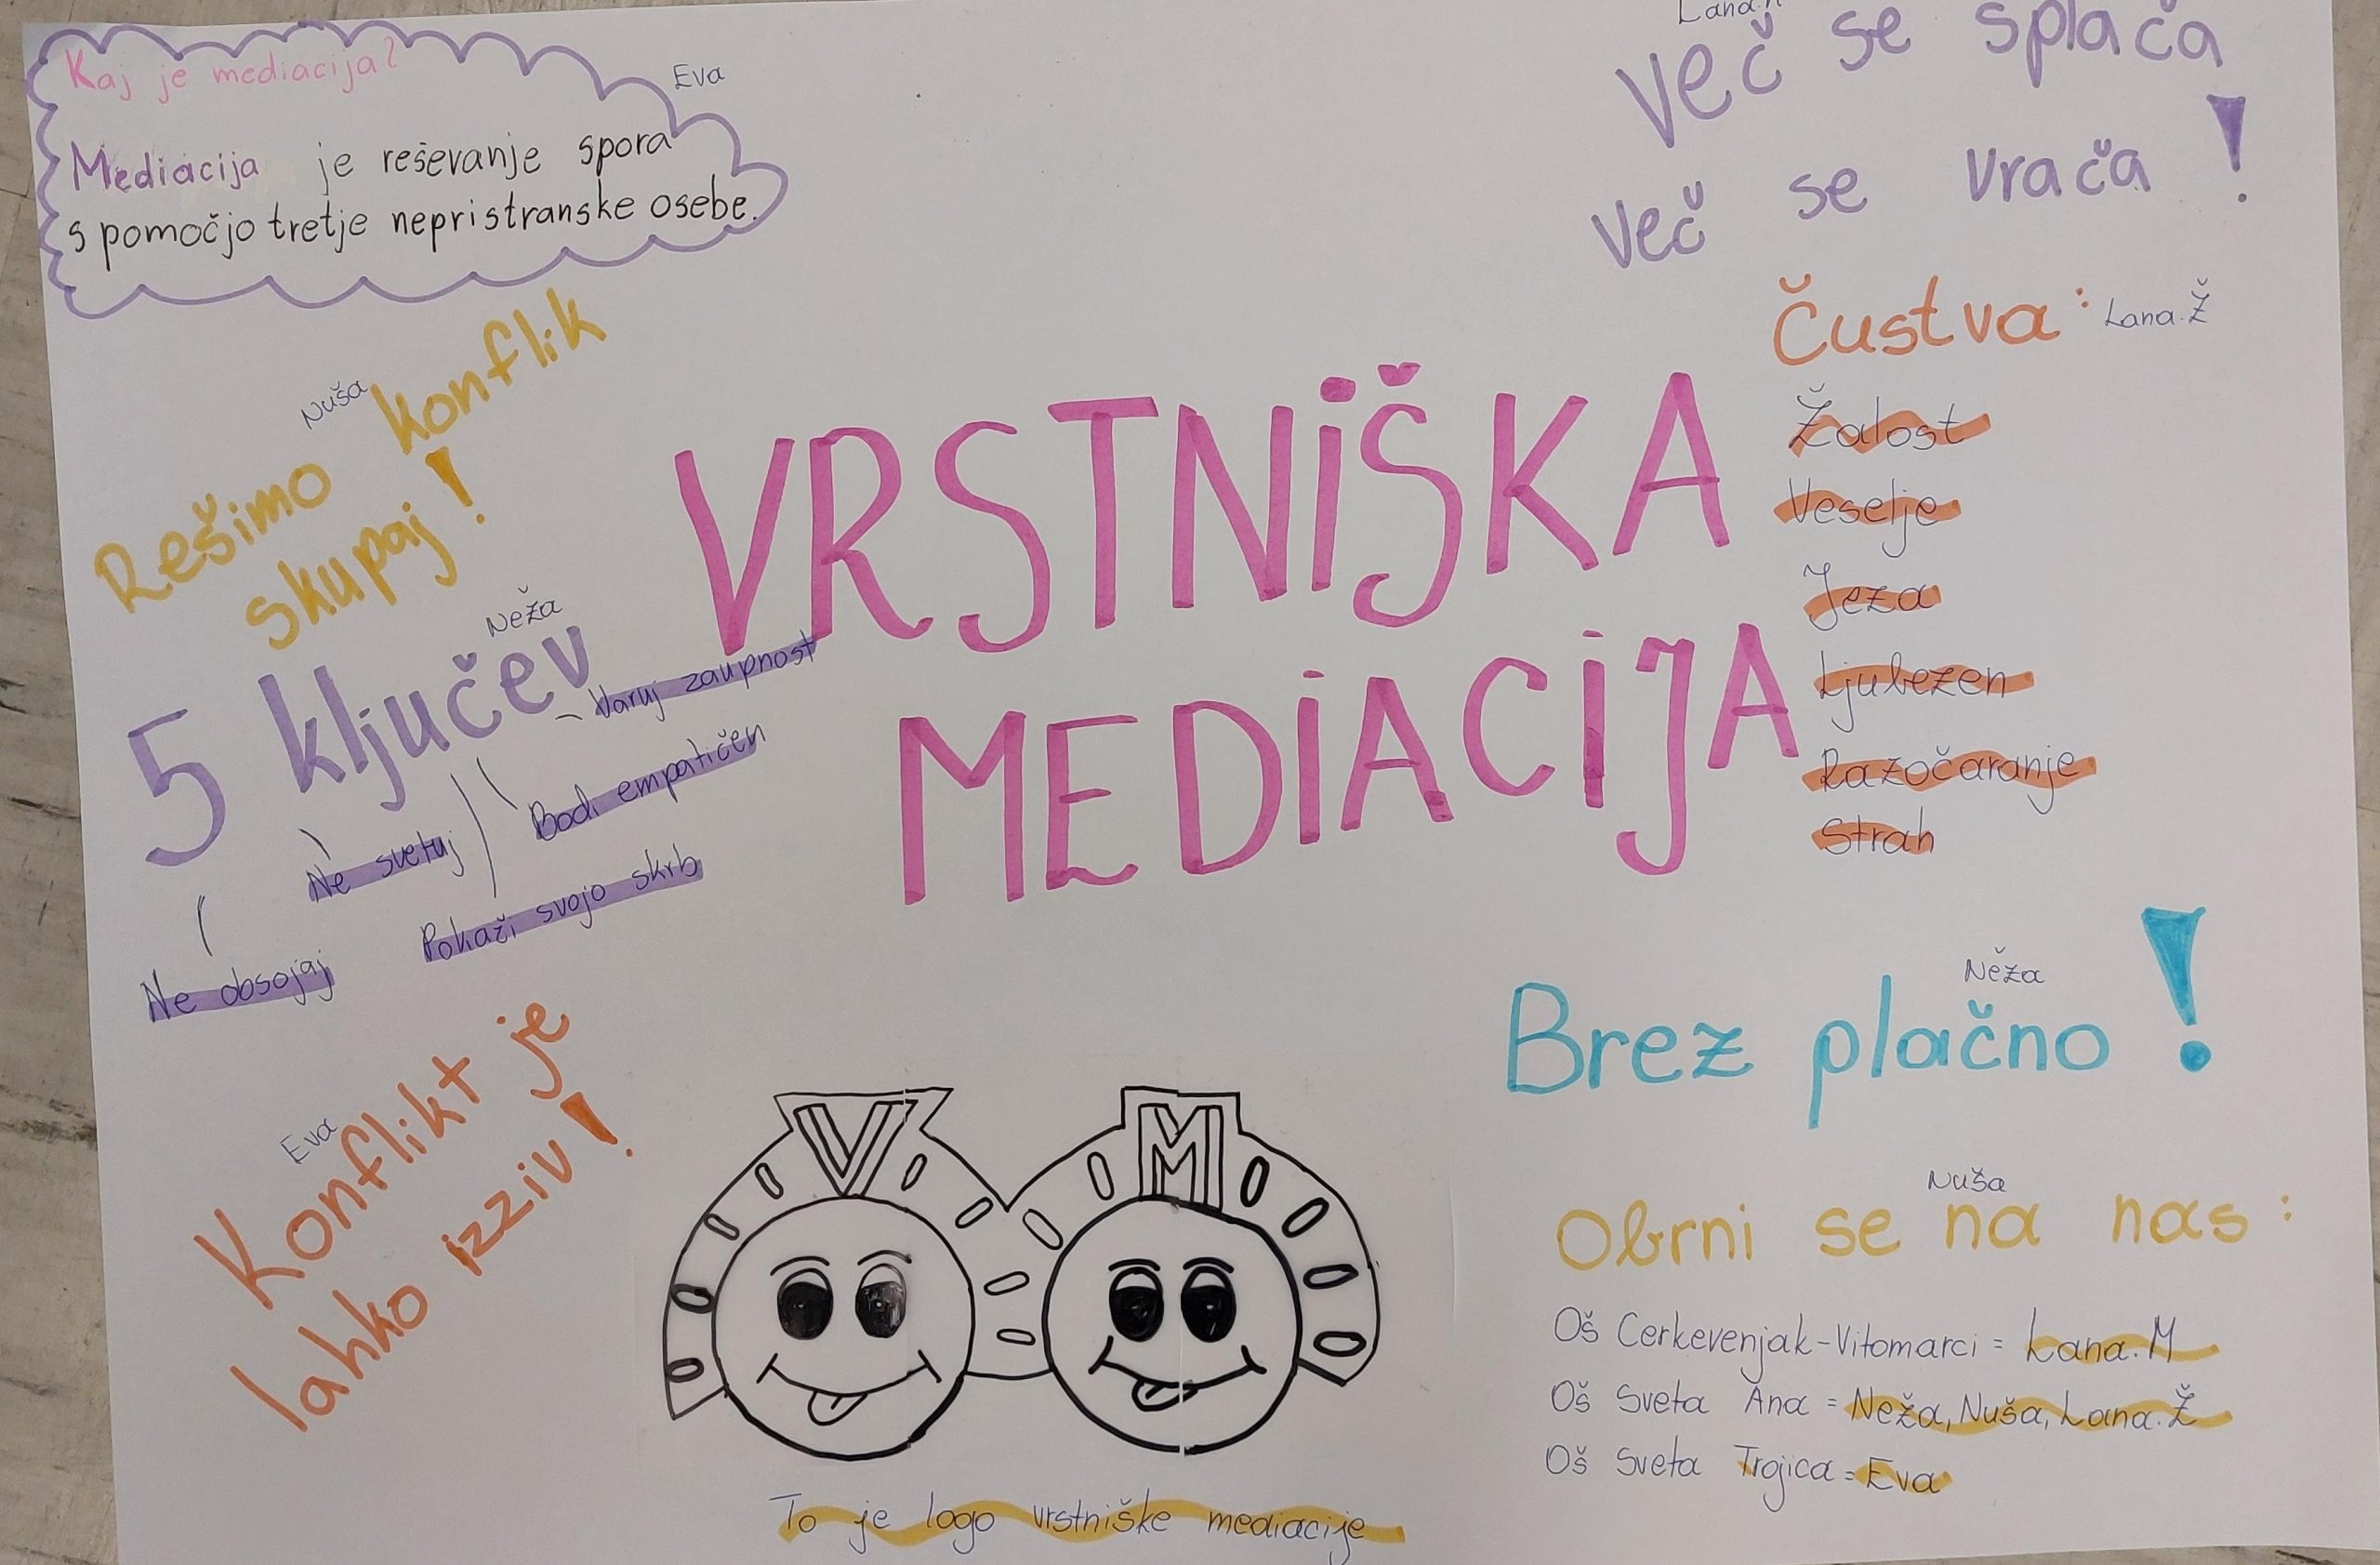 Kaj je mediacija?
Eva
Mediacija je reševanje spora
s pomočjo tretje nepristranske osebe.
Nuša
Rešimo konflik
skupaj!
Neža
5 ključev
- Varuj zaupnost
Bodi empatičen
Ne svetuj
Pokaži svojo skrb
Ne obsojaj
Eva
Konflikt je
lahko izziv!
VRSTNIŠKA
MEDIACIJA
V M
To je logo vrstniške mediacije
Več se splača
Več se vrača!
Čustva: Lana.Ž
Žalost
Veselje
Jeza
Ljubezen
Razočaranje
Strah
Neža
Brez plačno!
Nuša
Obrni se na nas:
Oš Cerkevenjak-Vitomarci = Lana.M
Oš Sveta Ana = Neža, Nuša, Lana.Ž
Oš Sveta Trojica = Eva